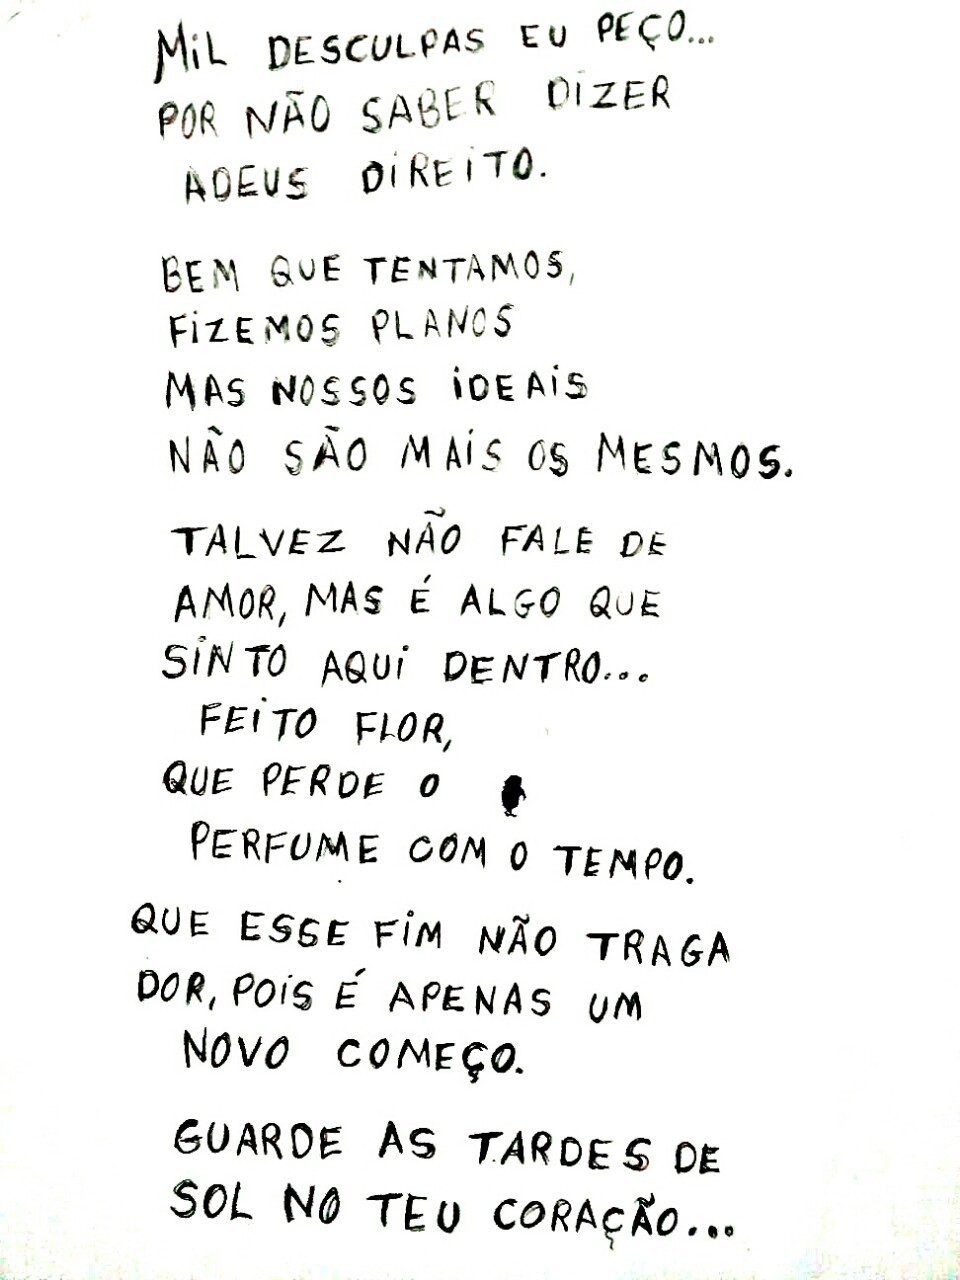 MiL DESCULPAS EU PEÇO...
POR NÃO SABER DIZER
ADEUS DIREITO.
BEM QUE TENTAMOS,
FIZEMOS PLANOS
MAS NOSSOS IDEAIS
NÃO SÃO MAIS OS MESMOS.
TALVEZ NÃO FALE DE
AMOR, MAS É ALGO QUE
SINTO AQUI DENTRO...
FEITO FLOR,
QUE PERDE O
PERFUME COM O TEMPO.
QUE ESSE FIM NÃO TRAGA
DOR, POIS É APENAS UM
NOVO COMEÇO.
GUARDE AS TARDES DE
SOL NO TEU CORAÇÃO...